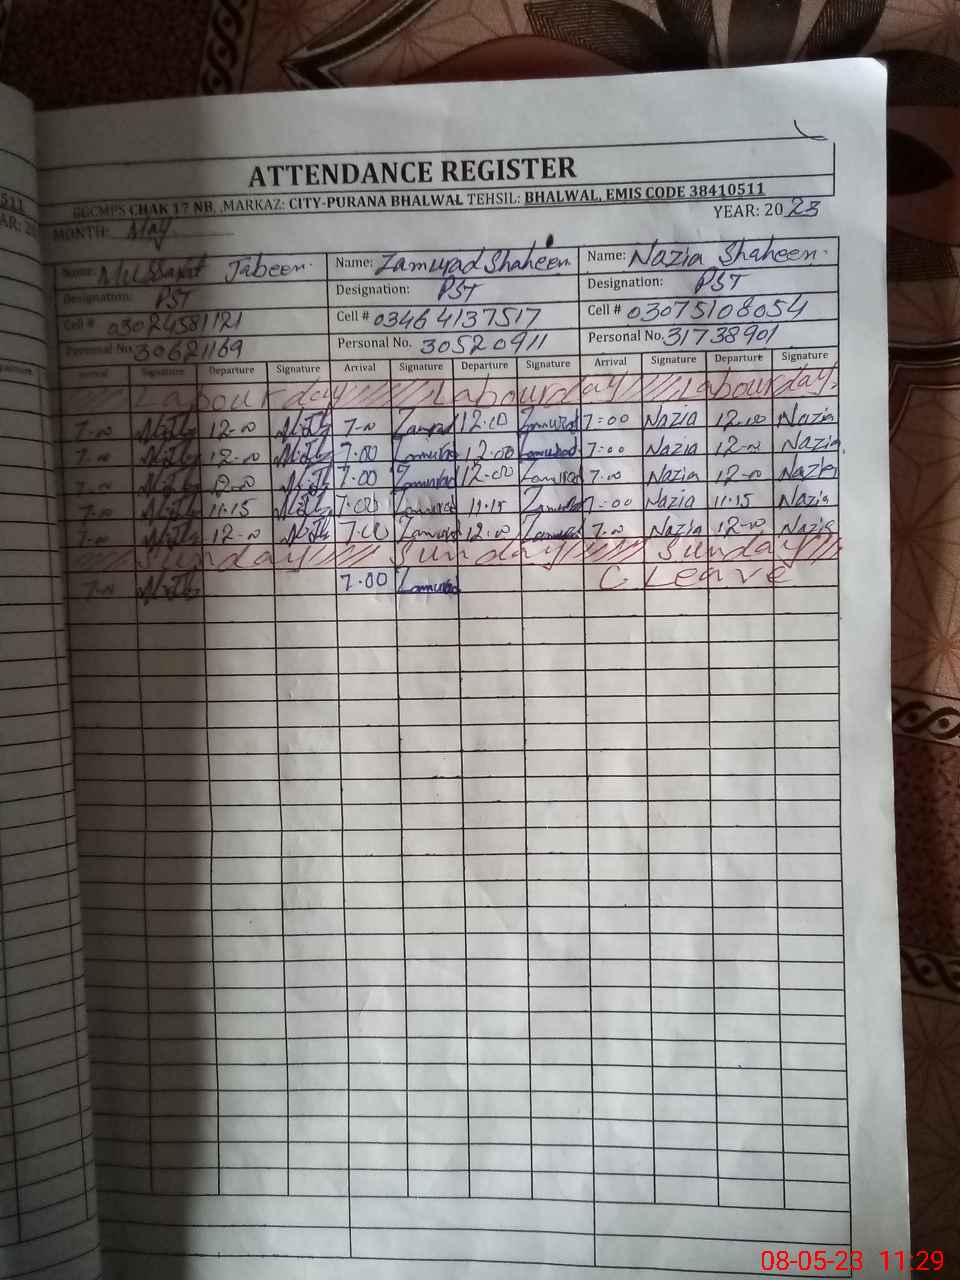 511
AR: 20
ATTENDANCE REGISTER
GGCMPS CHAK 17 NB, ,MARKAZ: CITY-PURANA BHALWAL TEHSIL: BHALWAL, EMIS CODE 38410511
MONTH: May YEAR: 2023
Name: Mussarat Jabeen. Name: Zamurad Shaheen Name: Nazia Shaheen.
Designation: PST Designation: PST Designation: PST
Cell # 03024581121 Cell # 03464137517 Cell # 03075108054
Personal No. 30621169 Personal No. 30520911 Personal No. 31738901
Arrival Signature Departure Signature Arrival Signature Departure Signature Arrival Signature Departure Signature
Labour day Labour day Labour day
7-00 12-00 7-00 Zamurad 12.00 Zamurad 7:00 Nazia 12-00 Nazia
7-00 12-00 7.00 Zamurad 12.00 Zamurad 7:00 Nazia 12-00 Nazia
7-00 12-00 7.00 Zamurad 12.00 Zamurad 7-00 Nazia 12-00 Nazia
7-00 11.15 7.00 Zamurad 11.15 Zamurad 7-00 Nazia 11.15 Nazia
7-00 12-00 7.00 Zamurad 12.00 Zamurad 7-00 Nazia 12-00 Nazia
Sunday Sunday Sunday
7-00 7.00 Zamurad C Leave
08-05-23 11:29